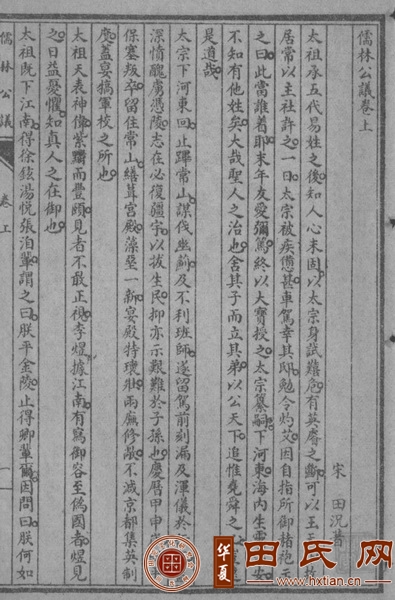 儒林公議卷上
宋 田況著
太祖承五代易姓之後知人心未固以太宗身試難危有英睿之斷可以王天
居常以主社許之一日太宗被疾憊甚車駕幸其邸勉令灼艾因自指所御赭袍示
之曰此當誰着耶末年友愛彌篤終以大寶授之太宗纂嗣下河東海内生靈 安
不知有他姓矣大哉聖人之治也舍其子而立其弟以公天下追惟堯舜之
是道哉
太宗下河東回止蹕常山謀伐幽薊及不利班師遂留駕前刻漏及渾儀於
深憤醜虜憑陵志在必復疆宇以拔生民抑亦示艱難於子孫也慶曆甲申
保塞叛卒留住常山繕葺宮殿藻堊一新宴殿特瓌壯兩廡修敞不減京都集英制
度蓋宴犒軍校之所也
太祖天表神偉紫䵣而豐頤見者不敢正視李煜據江南有寫御容至僞國者煜見
之日益憂懼知真人之在御也
太祖既下江南得徐鉉湯悅張洎輩謂之曰朕平金陵止得卿輩爾因問曰朕何如
儒林公議
卷上
一
華夏
田氏网
www.hxtian.cn